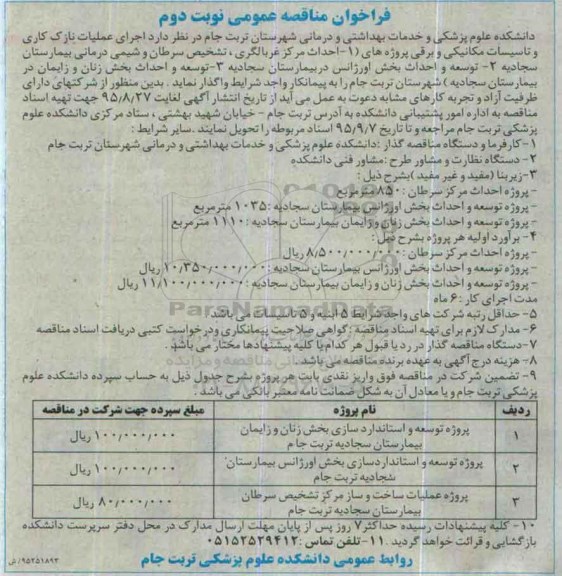 فراخوان مناقصه عمومی نوبت دوم
دانشکده علوم پزشکی و خدمات بهداشتی و درمانی شهرستان تربت جام در نظر دارد اجرای عملیات نازک کاری
و تاسیسات مکانیکی و برقی پروژه های (۱-احداث مرکز غربالگری ، تشخیص سرطان و شیمی درمانی بیمارستان
سجادیه ۲- توسعه و احداث بخش اورژانس دربیمارستان سجادیه ۳-توسعه و احداث بخش زنان و زایمان در
بیمارستان سجادیه ) شهرستان تربت جام را به پیمانکار واجد شرایط واگذار نماید . بدین منظور از شرکتهای دارای
ظرفیت آزاد و تجربه کارهای مشابه دعوت به عمل می آید از تاریخ انتشار آگهی لغایت ۹۵/۸/۲۷ جهت تهیه اسناد
مناقصه به اداره امور پشتیبانی دانشکده به آدرس تربت جام - خیابان شهید بهشتی ، ستاد مرکزی دانشکده علوم
پزشکی تربت جام مراجعه و تا تاریخ ۹۵/۹/۷ اسناد مربوطه را تحویل نمایند .سایر شرایط :
۱-کارفرما و دستگاه مناقصه گذار :دانشکده علوم پزشکی و خدمات بهداشتی و درمانی شهرستان تربت جام
۲- دستگاه نظارت و مشاور طرح :مشاور فنی دانشکده
۳-زیربنا (مفید و غیر مفید )بشرح ذیل :
- پروژه احداث مرکز سرطان : ۸۵۰ مترمربع
- پروژه توسعه و احداث بخش اورژانس بیمارستان سجادیه : ۱۰۳۵ مترمربع
- پروژه توسعه و احداث بخش زنان و زایمان بیمارستان سجادیه : ۱۱۱۰ مترمربع
۴- برآورد اولیه هر پروژه بشرح ذیل :
- پروژه احداث مرکز سرطان : ۸/۵۰۰/۰۰۰/۰۰۰ ریال
- پروژه توسعه و احداث بخش اورژانس بیمارستان سجادیه : ۱۰/۳۵۰/۰۰۰/۰۰۰ ریال
- پروژه توسعه و احداث بخش زنان و زایمان بیمارستان سجادیه : ۱۱/۱۰۰/۰۰۰/۰۰۰ ریال
مدت اجرای کار : ۶ ماه
۵- حداقل رتبه شرکت های واجد شرایط ۵ ابنیه و ۵ تاسیسات می باشد
۶- مدارک لازم برای تهیه اسناد مناقصه : گواهی صلاحیت پیمانکاری ودرخواست کتبی دریافت اسناد مناقصه
۷-دستگاه مناقصه گذار در رد یا قبول هر کدام یا کلیه پیشنهادها مختار می باشد .
۸- هزینه درج آگهی به عهده برنده مناقصه می باشد .
۹- تضمین شرکت در مناقصه فوق واریز نقدی بابت هر پروژه بشرح جدول ذیل به حساب سپرده دانشکده علوم
پزشکی تربت جام و یا معادل آن به شکل ضمانت نامه معتبر بانکی می باشد :
ردیف نام پروژه مبلغ سپرده جهت شرکت در مناقصه
۱ پروژه توسعه و استاندارد سازی بخش زنان و زایمان بیمارستان سجادیه تربت جام ۱۰۰/۰۰۰/۰۰۰ ریال
۲ پروژه توسعه و استانداردسازی بخش اورژانس بیمارستان سجادیه تربت جام ۱۰۰/۰۰۰/۰۰۰ ریال
۳ پروژه عملیات ساخت و ساز مرکز تشخیص سرطان بیمارستان سجادیه تربت جام ۸۰/۰۰۰/۰۰۰ ریال
۱۰- کلیه پیشنهادات رسیده حداکثر ۷ روز پس از پایان مهلت ارسال مدارک در محل دفتر سرپرست دانشکده
بازگشایی و قرائت خواهد گردید .۱۱-تلفن تماس :۰۵۱۵۲۵۲۹۴۱۲
روابط عمومی دانشکده علوم پزشکی تربت جام
۹۵۲۵۱۸۹۳/ش
ParsNamadData